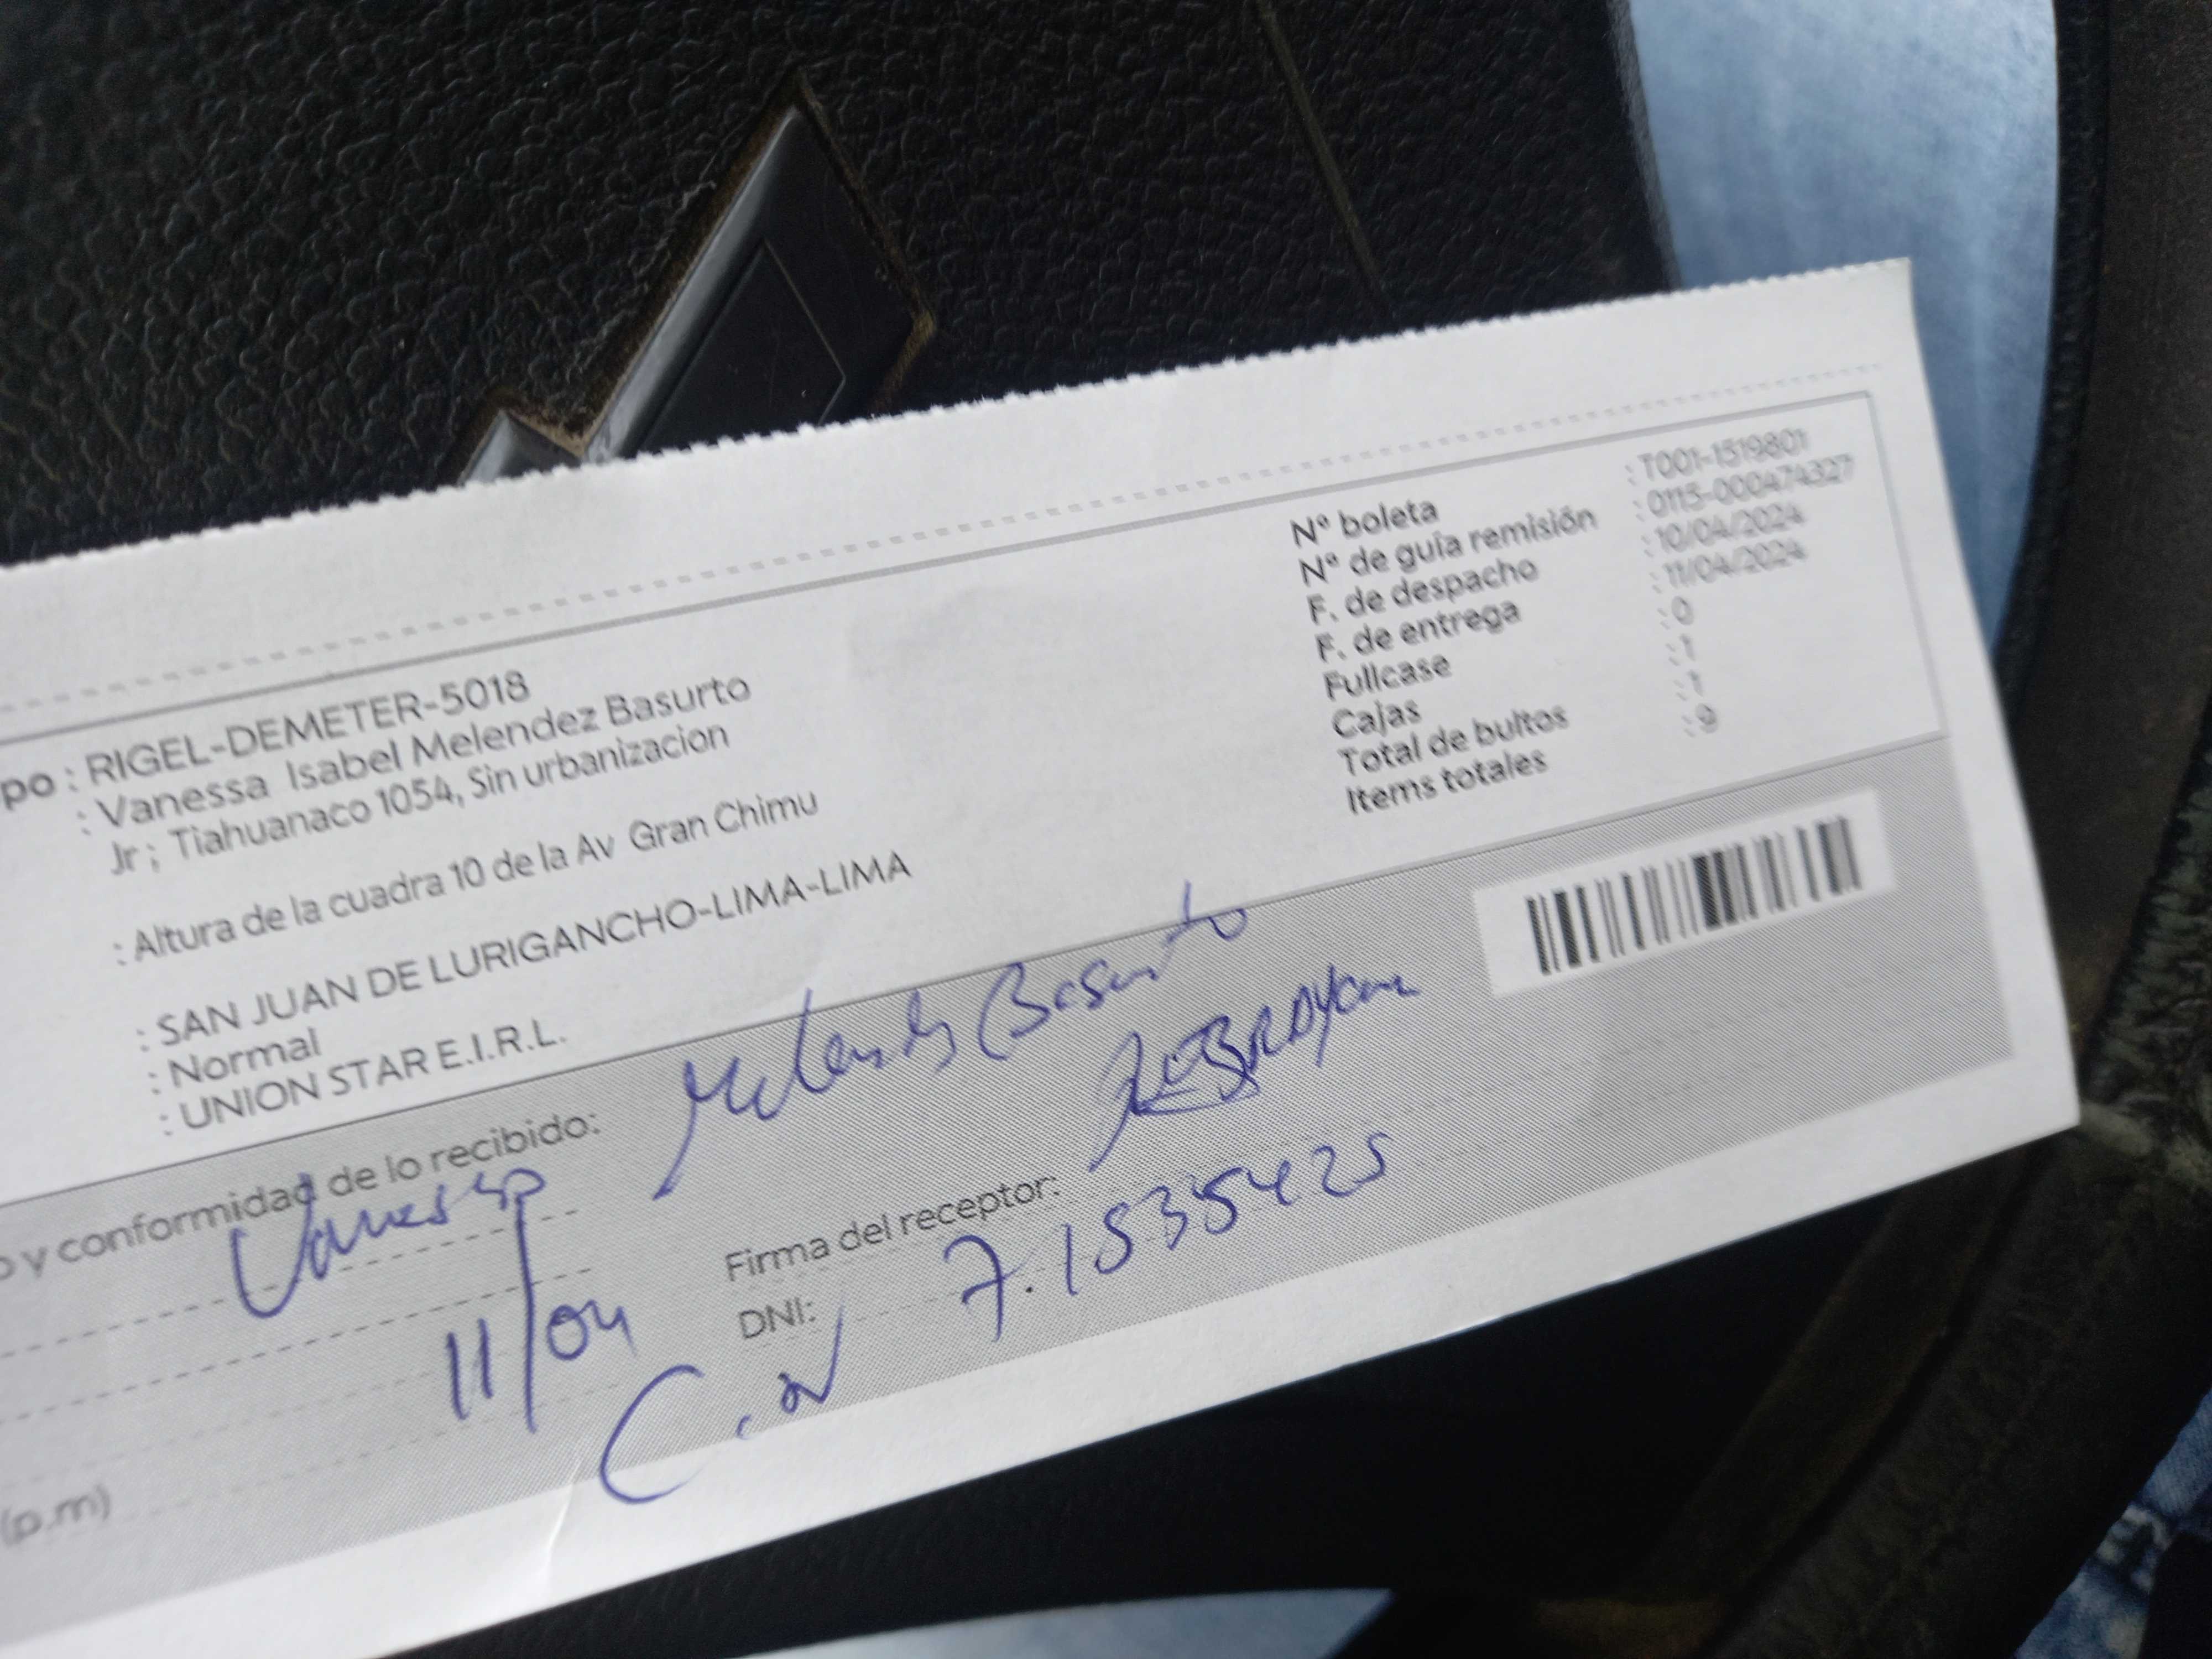 po : RIGEL-DEMETER-5018
: Vanessa Isabel Melendez Basurto
Jr ; Tiahuanaco 1054, Sin urbanizacion
: Altura de la cuadra 10 de la Av Gran Chimu
: SAN JUAN DE LURIGANCHO-LIMA-LIMA
: Normal
: UNION STAR E.I.R.L.
N° boleta : T001-1519801
N° de guía remisión : 0115-000474327
F. de despacho : 10/04/2024
F. de entrega : 11/04/2024
Fullcase : 0
Cajas : 1
Total de bultos : 1
Items totales : 9
o y conformidad de lo recibido:
Vanessa Melendez Basurto
11/04
Firma del receptor:
DNI: 7.1535425
(p.m)